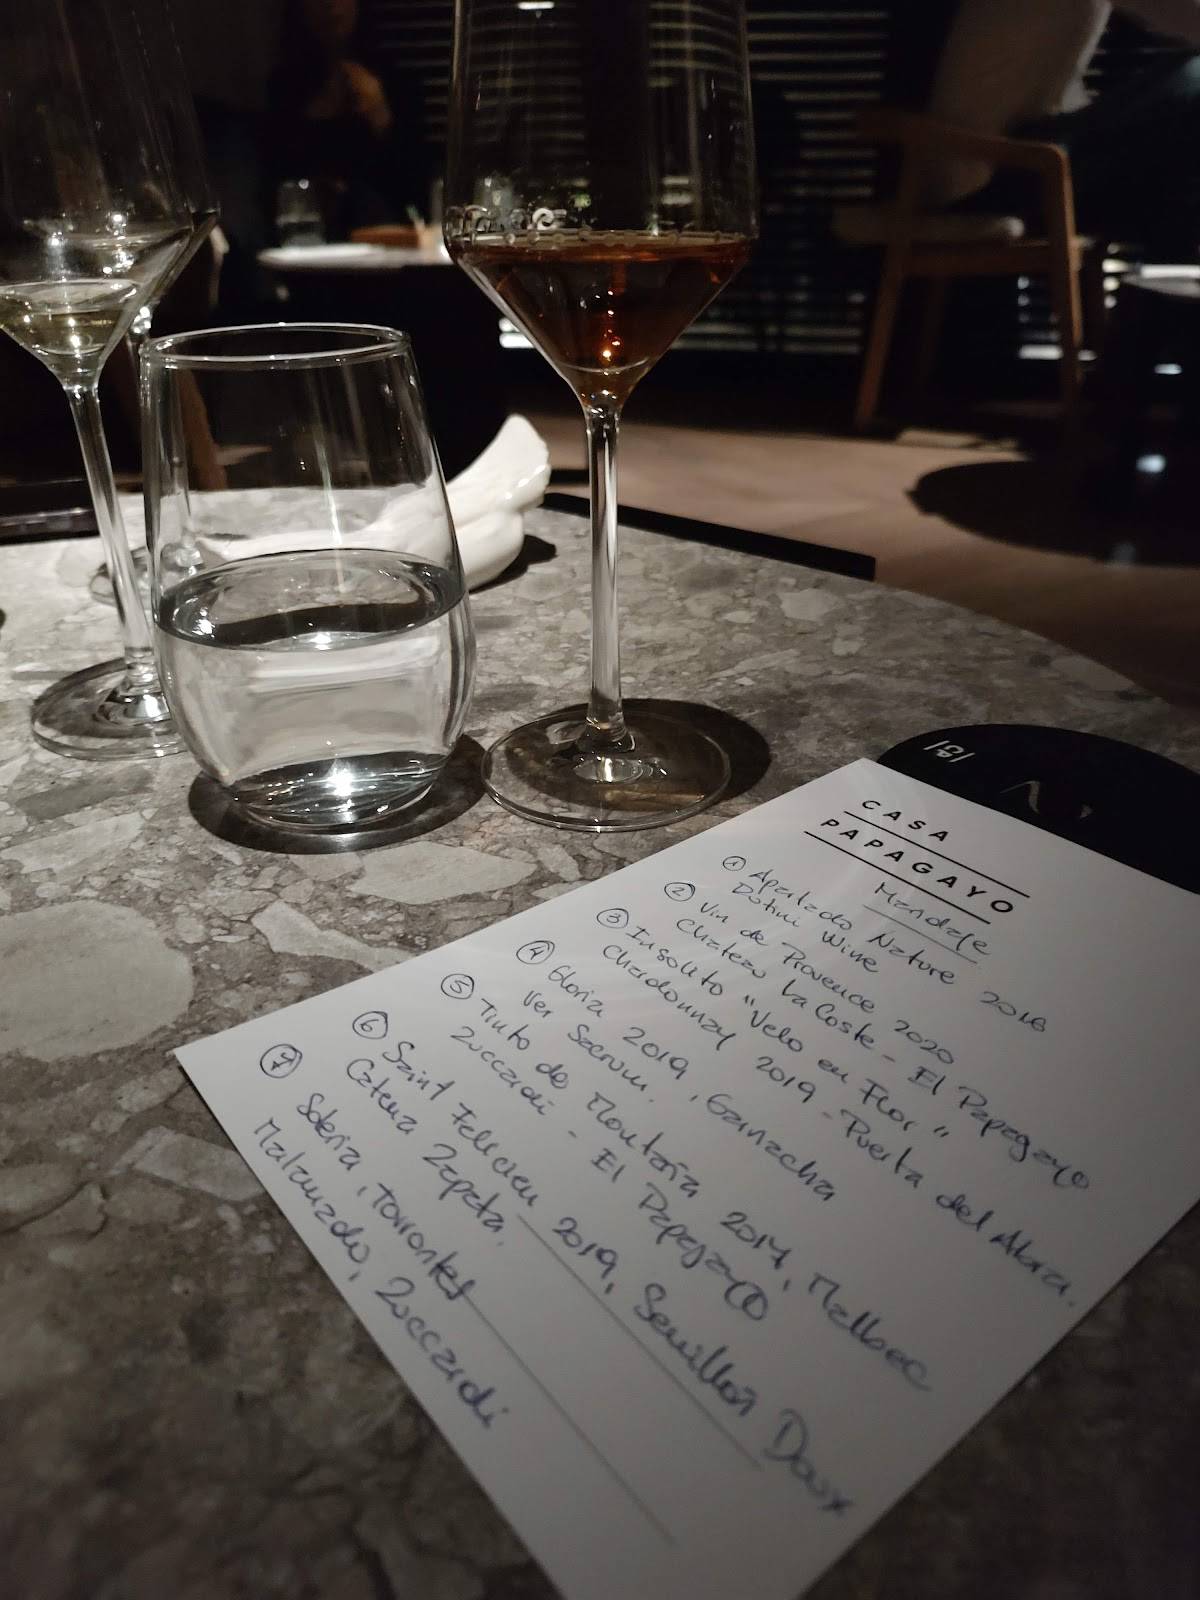 CASA
PAPAGAYO
Maridaje
① Apartado Nature 2018
Dotini Wine
② Vin de Provence 2020
Chateau La Coste - El Papagayo
③ Insolito "Velo en Flor"
Chardonnay 2019 - Puerta del Abra.
④ Gloria 2019, Garnacha
Ver Sacrum.
⑤ Tinto de Montaña 2017, Malbec
Zuccardi - El Papagayo
⑥ Saint Felicien 2019, Semillon Doux
Catena Zapata.
⑦ Soleria, Torrontes
Malamado, Zuccardi